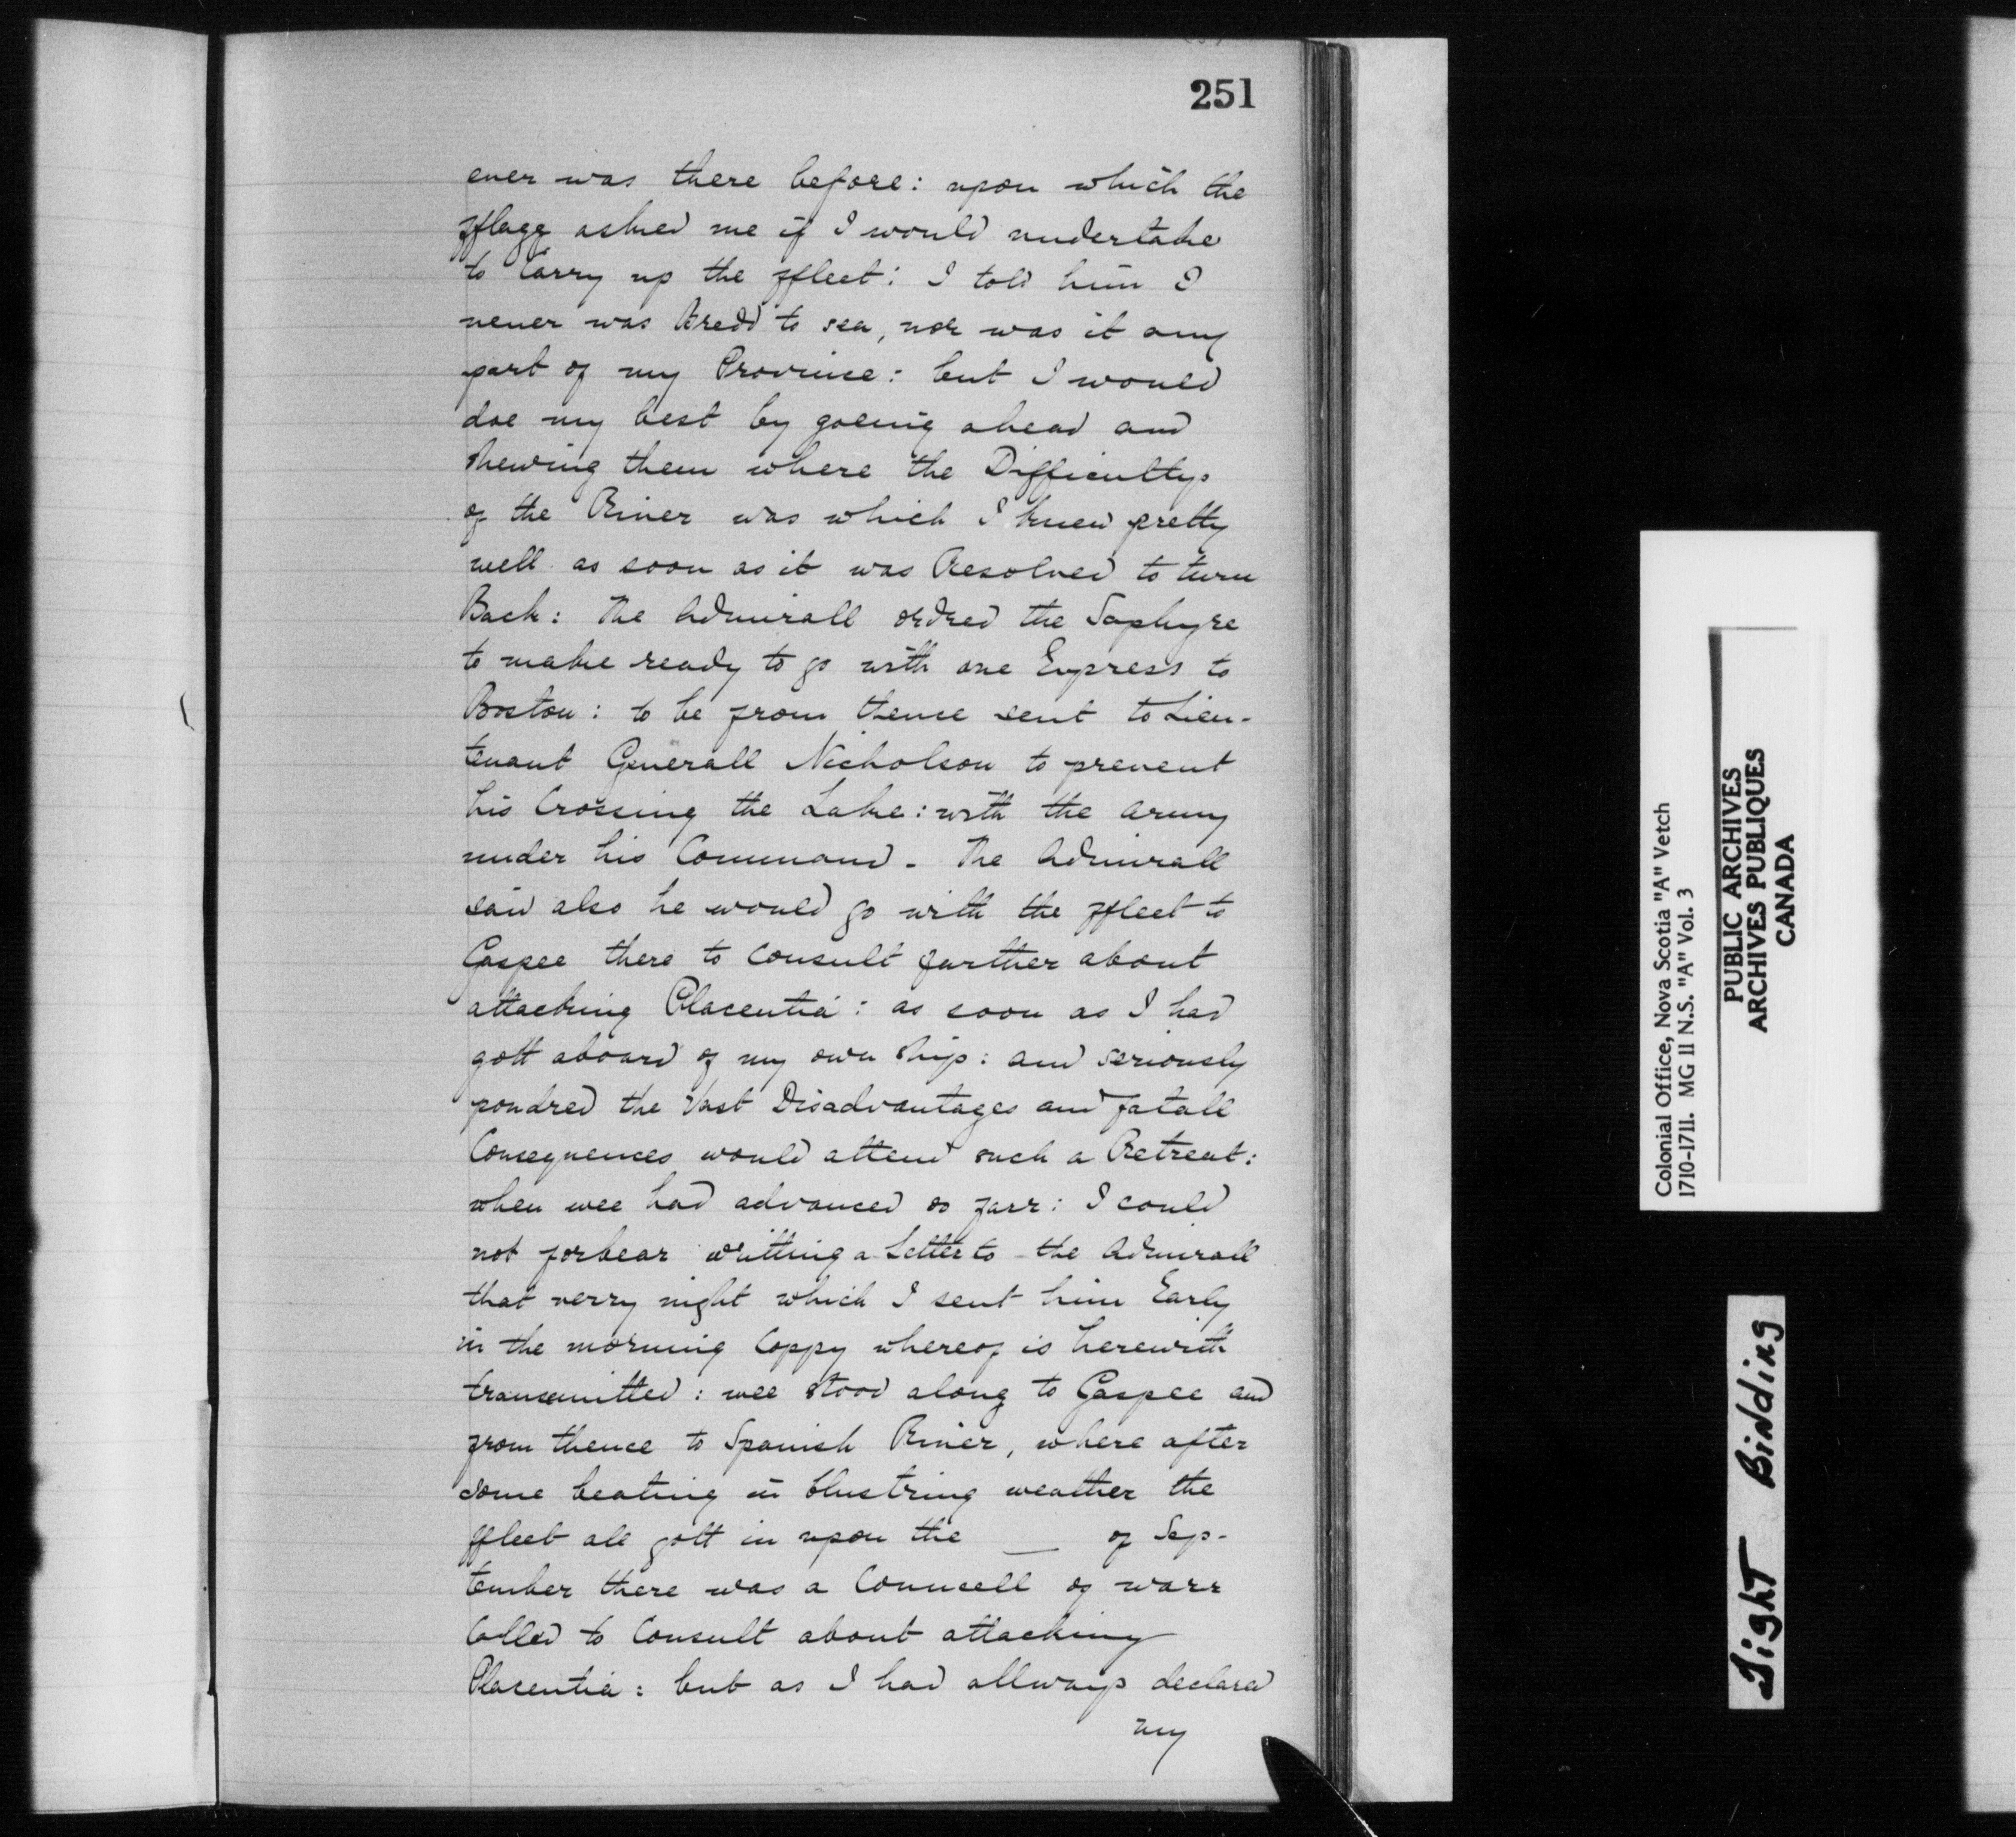 251
ever was there before: upon which the
fflagg asked me if I would undertake
to Carry up the ffleet: I told him I
never was Bredd to sea, nor was it any
part of my Province: but I would
doe my best by goeing ahead and
shewing them where the Difficultys
of the River was which I knew pretty
well as soon as it was Resolved to turn
Back: The Admirall ordred the Saphyre
to make ready to go with one Express to
Boston: to be from thence sent to Lieu-
tenant Generall Nicholson to prevent
his Crossing the Lake: with the army
under his Command. The Admirall
said also he would go with the ffleet to
Gaspee there to Consult further about
attacking Placentia: as soon as I had
gott aboard of my own ship: and seriously
pondred the Vast Disadvantages and fatall
Consequences would attend such a Retreat:
when wee had advanced so farr: I could
not forbear writting a Letter to the Admirall
that verry night which I sent him Early
in the morning Coppy whereof is herewith
transmitted: wee stood along to Gaspee and
from thence to Spanish River, where after
some beating in blustring weather the
ffleet all gott in upon the __ of Sep-
tember there was a Councell of warr
Called to Consult about attacking
Placentia: but as I had allways declared
my
Colonial Office, Nova Scotia "A" Vetch
1710-1711. MG 11 N.S. "A" Vol. 3
PUBLIC ARCHIVES
ARCHIVES PUBLIQUES
CANADA
Tight Binding